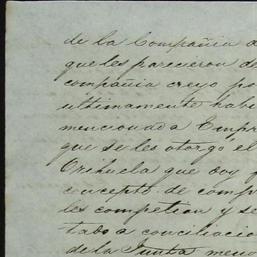 de la Compañia d
que les parecieron de
compañia creyo po
ultimamente habi
mencionada Empr
que se les otorgó el
Orihuela que doy f
concepto de comp
les competion y se
tado a conciliacio
de la Junta meno